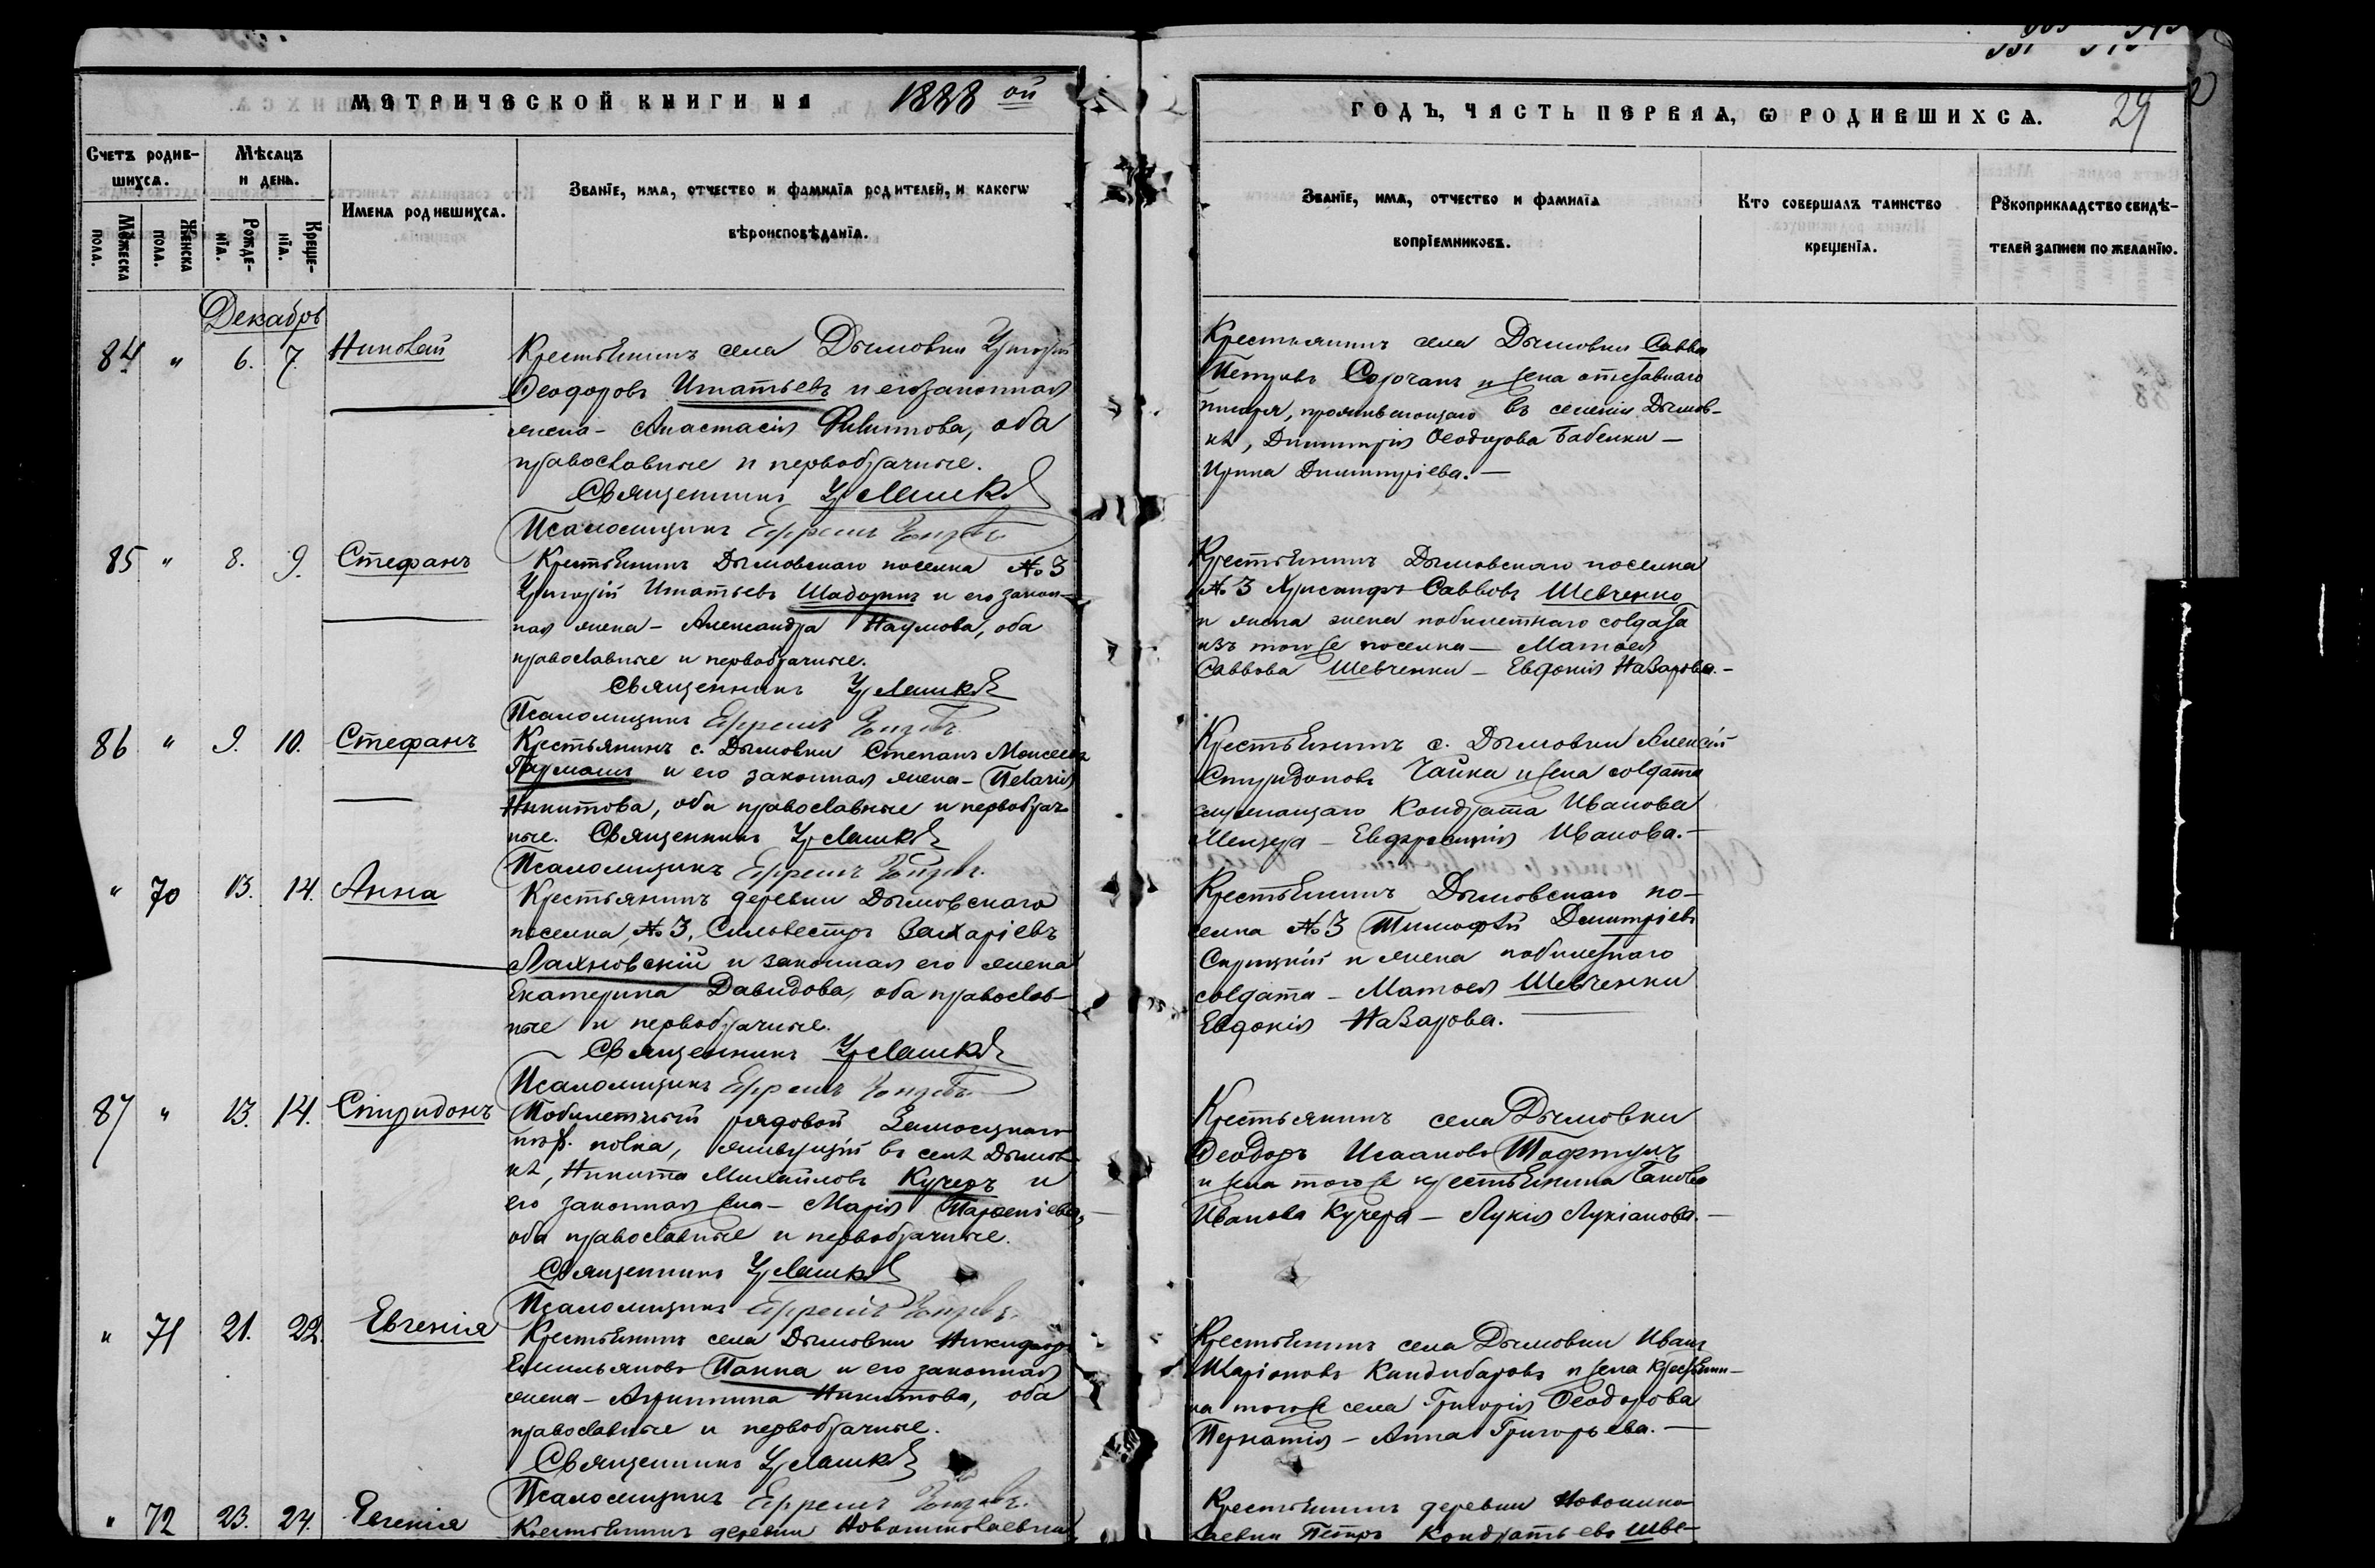 МЕТРИЧЕСКОЙ КНИГИ НА 1888 ой
Счетъ родив-
шихся.
Мѣсяцъ
и день.
Мужеска
пола.
Женска
пола.
Рожде-
нія.
Креще-
нія.
Имена родившихся.
Званіе, имя, отчество и фамилія родителей, и какого
вѣроисповѣданія.
Декабрь
84 " 6. 7. Николай
Крестьянинъ села Дымовки Григорій
Ѳеодоровъ Игнатьевъ и его законная
жена - Анастасія Филиппова, оба
православные и первобрачные.
Священникъ Гр Лашко
Псаломщикъ Ефремъ
85 " 8. 9. Стефанъ
Крестьянинъ Дымовскаго поселка № 3
Григорій Игнатьевъ Шадоринъ и его закон-
ная жена - Александра Наумова, оба
православные и первобрачные.
Священникъ Гр Лашко
Псаломщикъ Ефремъ
86 " 9. 10. Стефанъ
Крестьянинъ с. Дымовки Степанъ Моисеевъ
и его законная жена - Пелагія
Никитова, оба православные и первобрач-
ные. Священникъ Гр Лашко
Псаломщикъ Ефремъ
" 70 13. 14. Анна
Крестьянинъ деревни Дымовскаго
поселка, № 3, Сильвестръ Захаріевъ
Лахновскій и законная его жена
Екатерина Давидова, оба православ-
ные и первобрачные.
Священникъ Гр Лашко
Псаломщикъ Ефремъ
87 " 13. 14. Спиридонъ
Побилетный рядовой Замосцкаго
пѣх. полка, живущій въ селѣ Дымов-
кѣ, Никита Михайловъ Кучеръ и
его законная жена - Марія Парѳеніева,
оба православные и первобрачные.
Священникъ Гр Лашко
Псаломщикъ Ефремъ
" 71 21. 22. Евгенія
Крестьянинъ села Дымовки Никифоръ
Емильяновъ Панна и его законная
жена - Агриппина Никитова, оба
православные и первобрачные.
Священникъ Гр Лашко
Псаломщикъ Ефремъ
" 72 23. 24. Евгенія
Крестьянинъ деревни Новониколаевки
ГОДЪ, ЧАСТЬ ПЕРВАЯ, Ѡ РОДИВШИХСЯ. 29
Званіе, имя, отчество и фамилія
вопріемниковъ.
Кто совершалъ таинство
крещенія.
Рукоприкладство свидѣ-
телей записи по желанію.
Крестьянинъ села Дымовки Савва
Петровъ Сорочанъ и жена отставнаго
писаря, проживающаго въ селеніи Дымов-
кѣ, Димитрія Ѳеодорова Бабенки -
Ирина Димитріева. -
Крестьянинъ Дымовскаго поселка
№ 3 Хрисанфъ Саввовъ Шевченко
и жена побилетнаго солдата
изъ того же поселка - Матѳея
Саввова Шевченки - Евдокія Назарова. -
Крестьянинъ с. Дымовки Алексій
Спиридоновъ Чайка и жена солдата
служащаго Кондрата Иванова
- Евфросинія Иванова. -
Крестьянинъ Дымовскаго по-
селка № 3 Тимоѳей Димитріевъ
и жена побилетнаго
солдата - Матѳея Шевченки
Евдокія Назарова.
Крестьянинъ села Дымовки
Ѳеодоръ Исааковъ
и жена того же крестьянина Іакова
Иванова Кучера - Лукія Лукіанова. -
Крестьянинъ села Дымовки Иванъ
Иларіоновъ Киндибаровъ и жена крестьяни-
на того же села Григорія Ѳеодорова
- Анна Григорьева. -
Крестьянинъ деревни Новонико-
лаевки Петръ Кондратьевъ Шве-